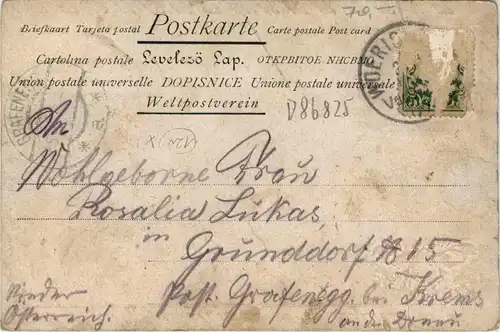 Briefkaart Tarjeta postal Postkarte Carte postale Post card
Cartolina postale Levelező Lap. ОТКРВІТОЕ NНСВМО
Union postale universelle DOPISNICE Unione postale universale
Weltpostverein
GRAFENE
D86825
An
Wohlgeborne Frau
Rosalia Lukas
in
Grunddorf № 15
Post. Grafenegg bei Krems
an der Donau
Nieder
Österreich.